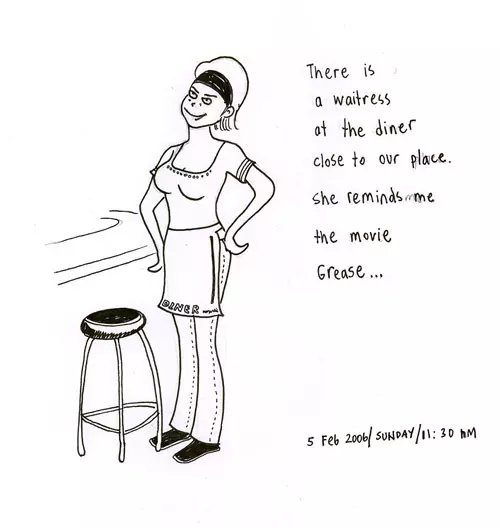 There is
a waitress
at the diner
close to our place.
She reminds me
the movie
Grease...
DINER
5 Feb 2006/SUNDAY/11:30 AM